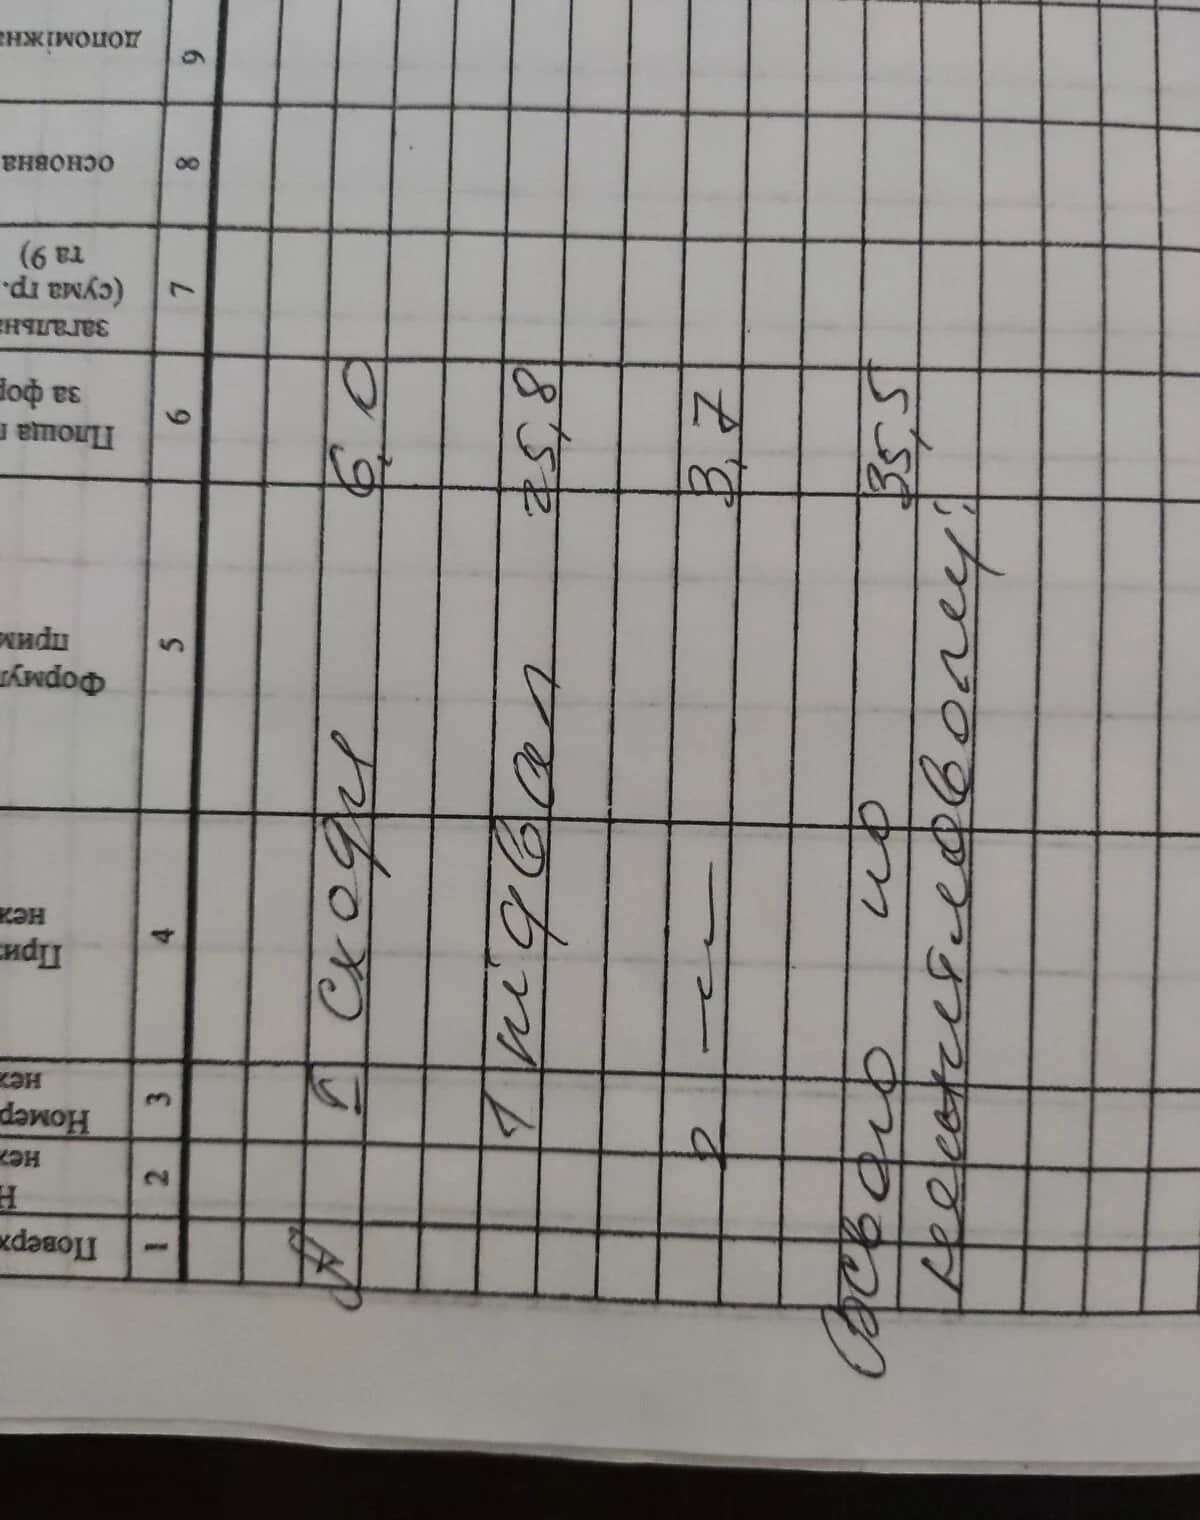 Поверх
Номер
При
Формул
прим
Площа п
за фор
загальна
(сума гр.
та 9)
основна
допоміжна
1 2 3 4 5 6 7 8 9
І сходи 6,0
1 підвал 25,8
2 —"— 3,7
Всього по 35,5